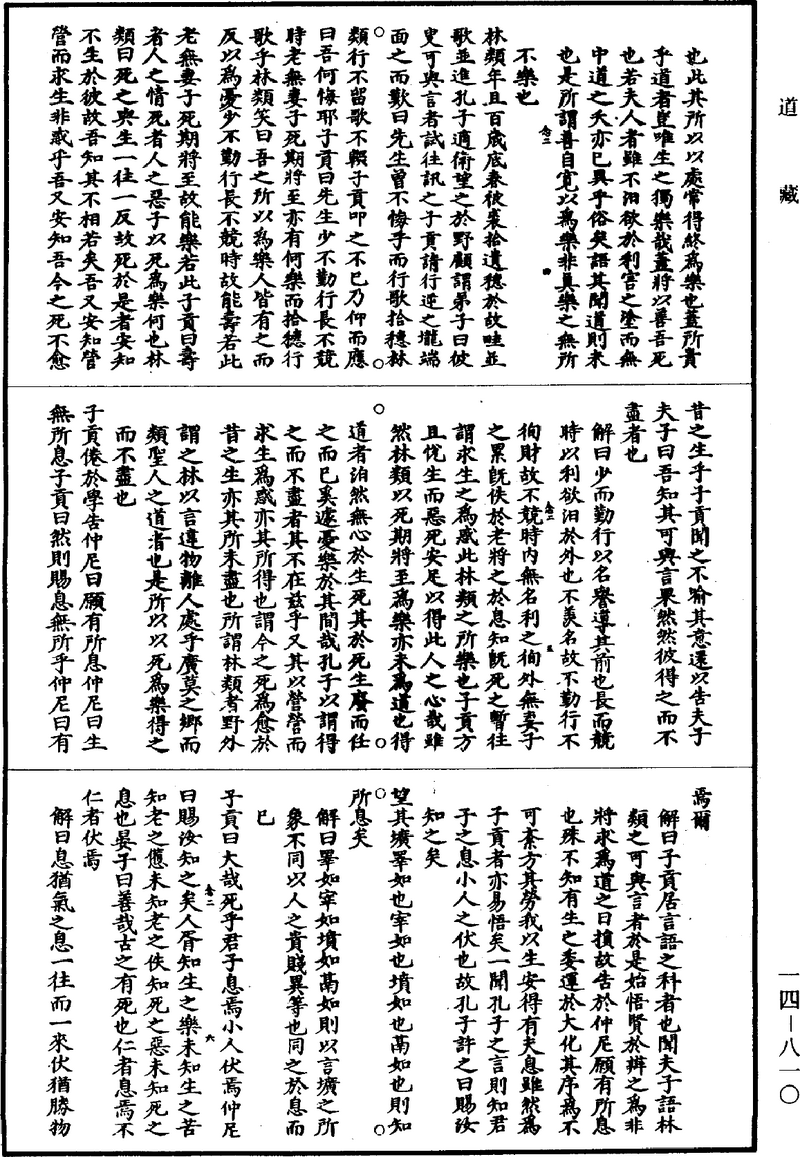 道藏
一四—八一〇
也此其所以以處常得終為樂也蓋所貴
乎道者豈唯生之獨樂哉蓋將以善吾死
也若夫人者雖不汨欲於利害之塗而無
中道之夭亦已異乎俗矣語其聞道則未
也是所謂善自寬以為樂非真樂之無所
不樂也
林類年且百歲底春被裘拾遺穗於故畦並
歌並進孔子適衛望之於野顧謂弟子曰彼
叟可與言者試往訊之子貢請行逆之壠端
面之而歎曰先生曾不悔乎而行歌拾穗林
類行不留歌不輟子貢叩之不已乃仰而應
曰吾何悔耶子貢曰先生少不勤行長不競
時老無妻子死期將至亦有何樂而拾穗行
歌乎林類笑曰吾之所以為樂人皆有之而
反以為憂少不勤行長不競時故能壽若此
老無妻子死期將至故能樂若此子貢曰壽
者人之情死者人之惡子以死為樂何也林
類曰死之與生一往一反故死於是者安知
不生於彼故吾知其不相若矣吾又安知營
營而求生非惑乎吾又安知吾今之死不愈
昔之生乎子貢聞之不喻其意還以告夫子
夫子曰吾知其可與言果然然彼得之而不
盡者也
解曰少而勤行以名譽導其前也長而競
時以利欲汨於外也不羨名故不勤行不
徇財故不競時內無名利之徇外無妻子
之累既佚於老將之於息知既死之暫往
謂求生之為惑此林類之所樂也子貢方
且忧生而惡死安足以得此人之心哉雖
然林類以死期將至為樂亦未為道也得
道者泊然無心於生死其於死生廢而任
之而已奚遽憂樂於其間哉孔子以謂得
之而不盡者其不在茲乎又其以營營而
求生為惑亦其所得也謂今之死為愈於
昔之生亦其所未盡也所謂林類者野外
謂之林以言違物離人處乎廣莫之鄉而
類聖人之道者也是所以以死為樂得之
而不盡也
子貢倦於學告仲尼曰願有所息仲尼曰生
無所息子貢曰然則賜息無所乎仲尼曰有
焉爾
解曰子貢居言語之科者也聞夫子語林
類之可與言者於是始悟賢於辨之為非
將求為道之日損故告於仲尼願有所息
也殊不知有生之委運於大化其序為不
可紊方其勞我以生安得有夫息雖然為
子貢者亦易悟矣一聞孔子之言則知君
子之息小人之伏也故孔子許之曰賜汝
知之矣
望其壙睪如也宰如也墳如也鬲如也則知
所息矣
解曰睪如宰如墳如鬲如則以言壙之所
象不同以人之貴賤異等也同之於息而
已
子貢曰大哉死乎君子息焉小人伏焉仲尼
曰賜汝知之矣人胥知生之樂未知生之苦
知老之憊未知老之佚知死之惡未知死之
息也晏子曰善哉古之有死也仁者息焉不
仁者伏焉
解曰息猶氣之息一往而一來伏猶勝物